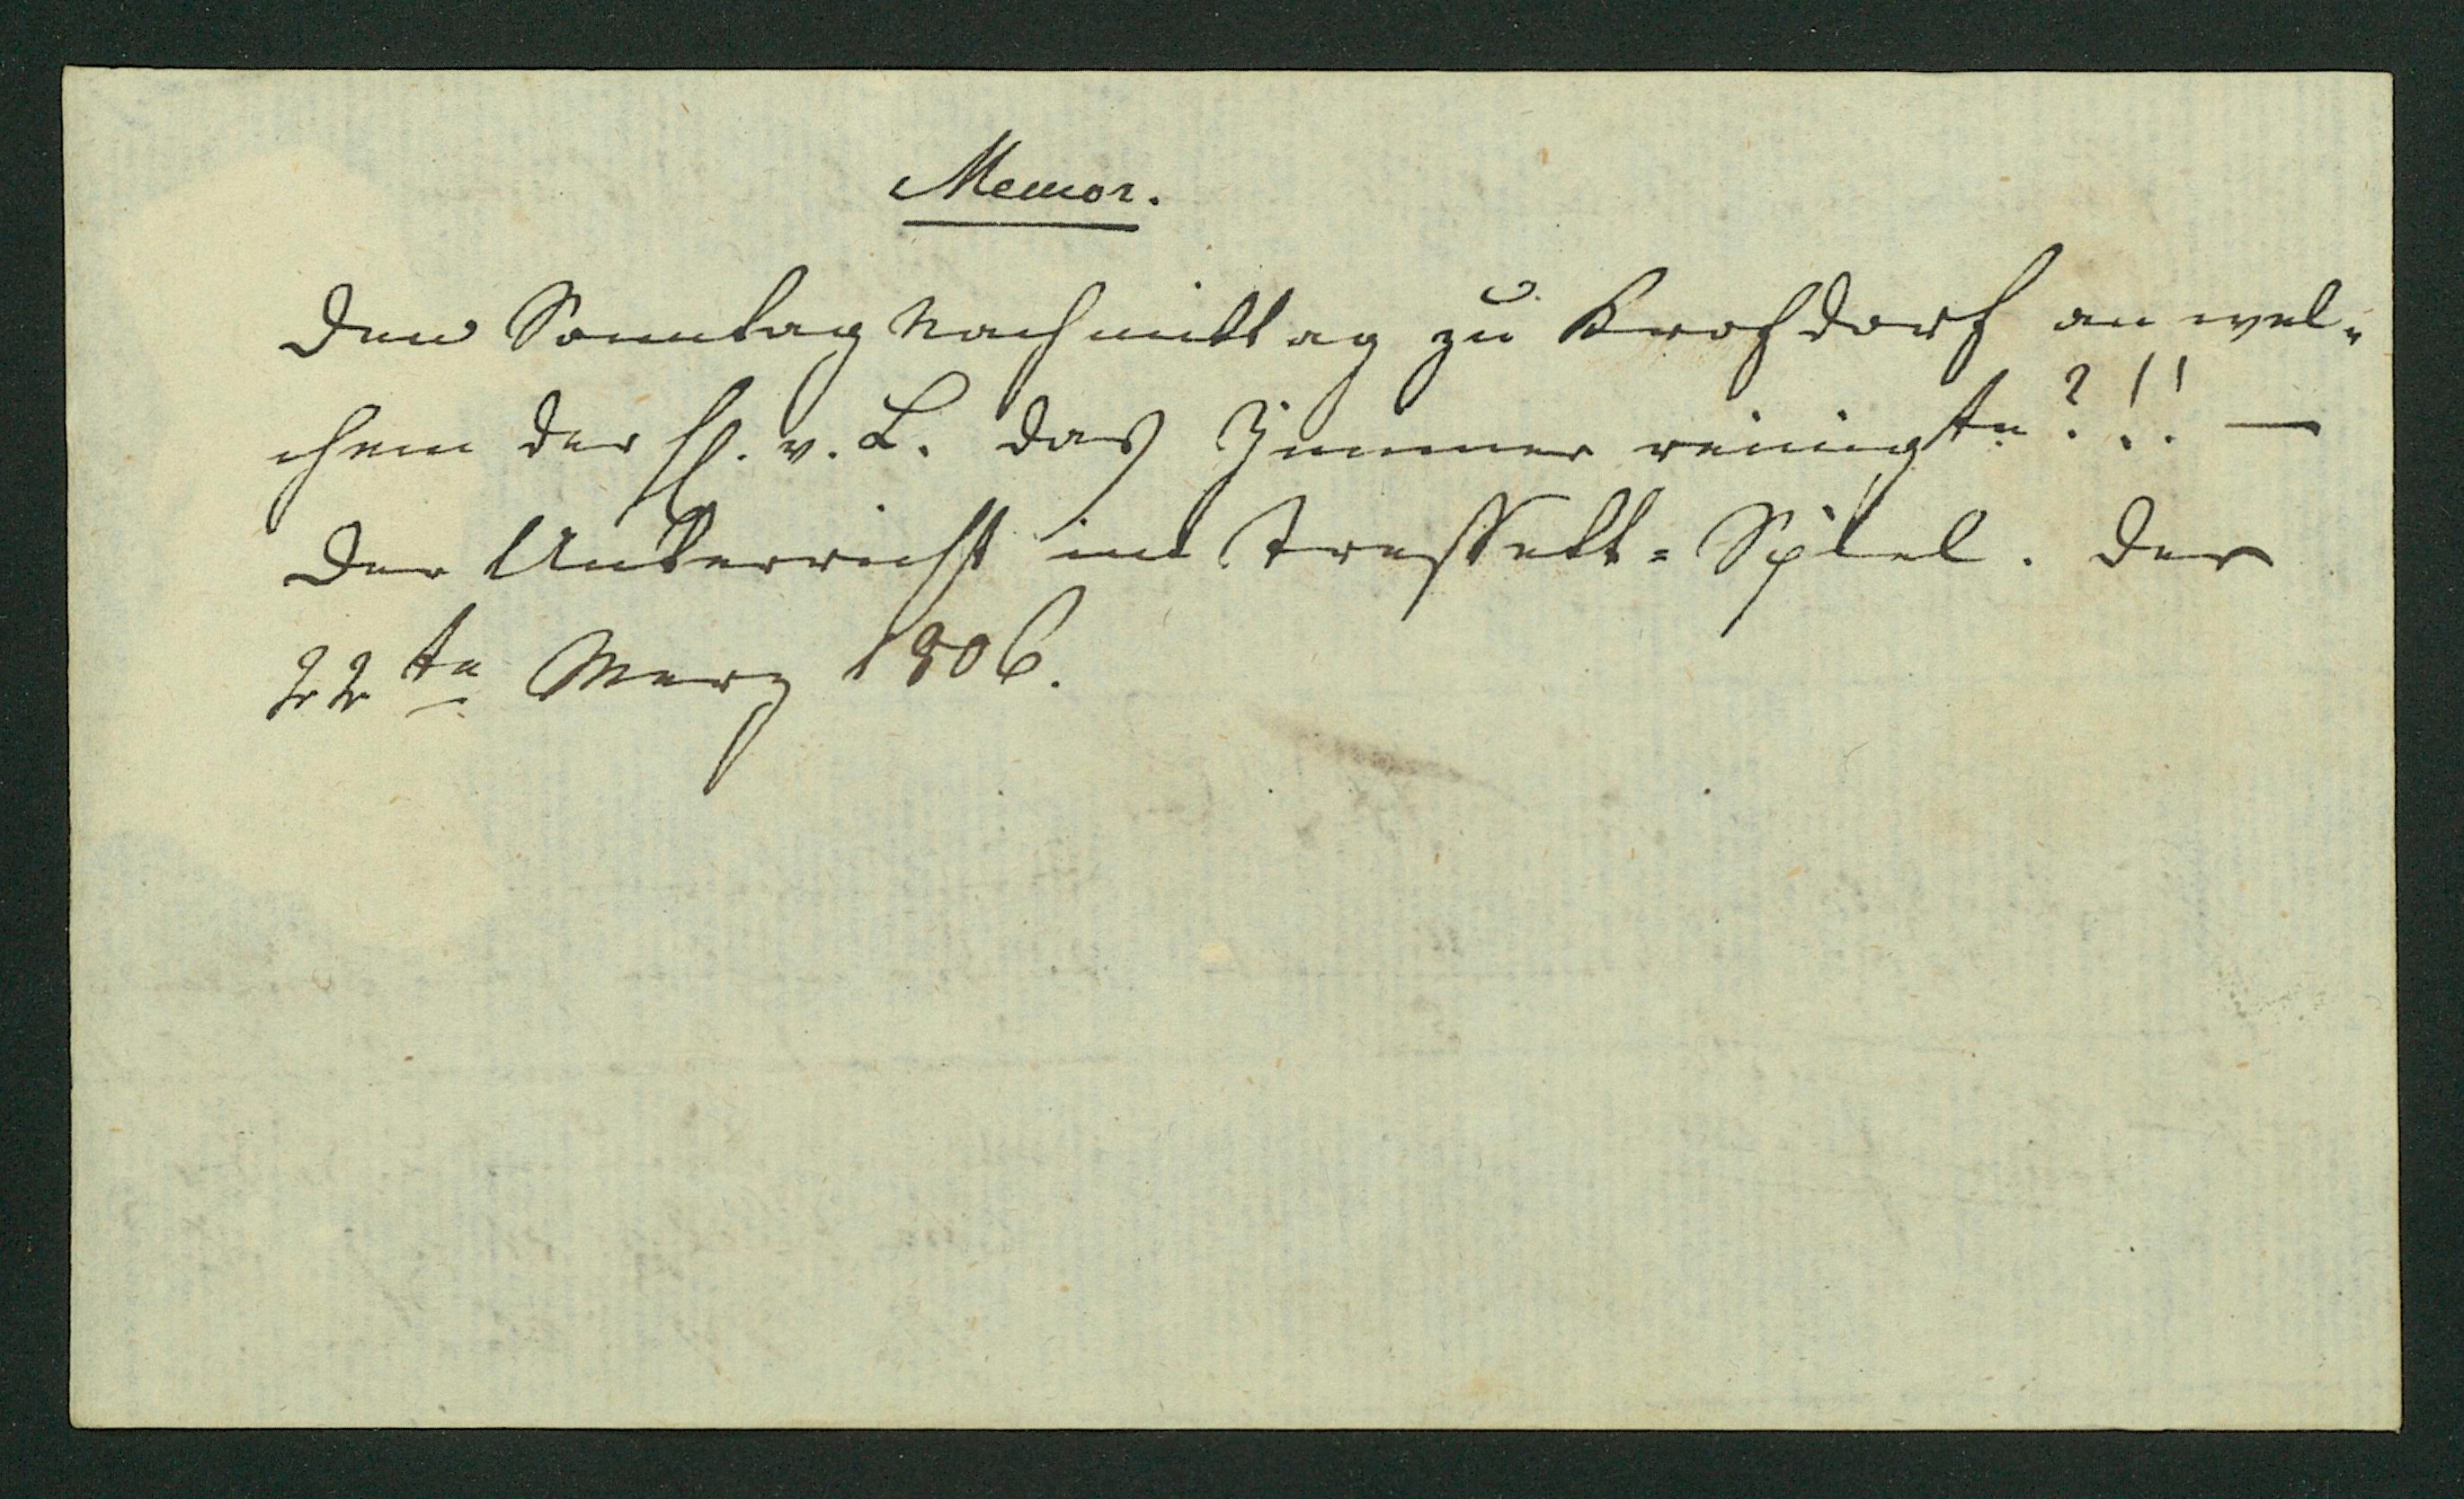 Memor.
Den Sonntag Nachmittag zu Krofdorf an wel-
chem der H. v. L. das Zimmer reinigte?!! —
Der Unterricht im Tressett-Spiel. Der
22te Merz 1806.